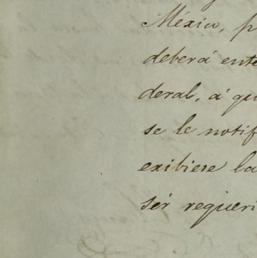 México, p
deberá ente
deral, á qu
se le notif
exibiese la
sér requeri